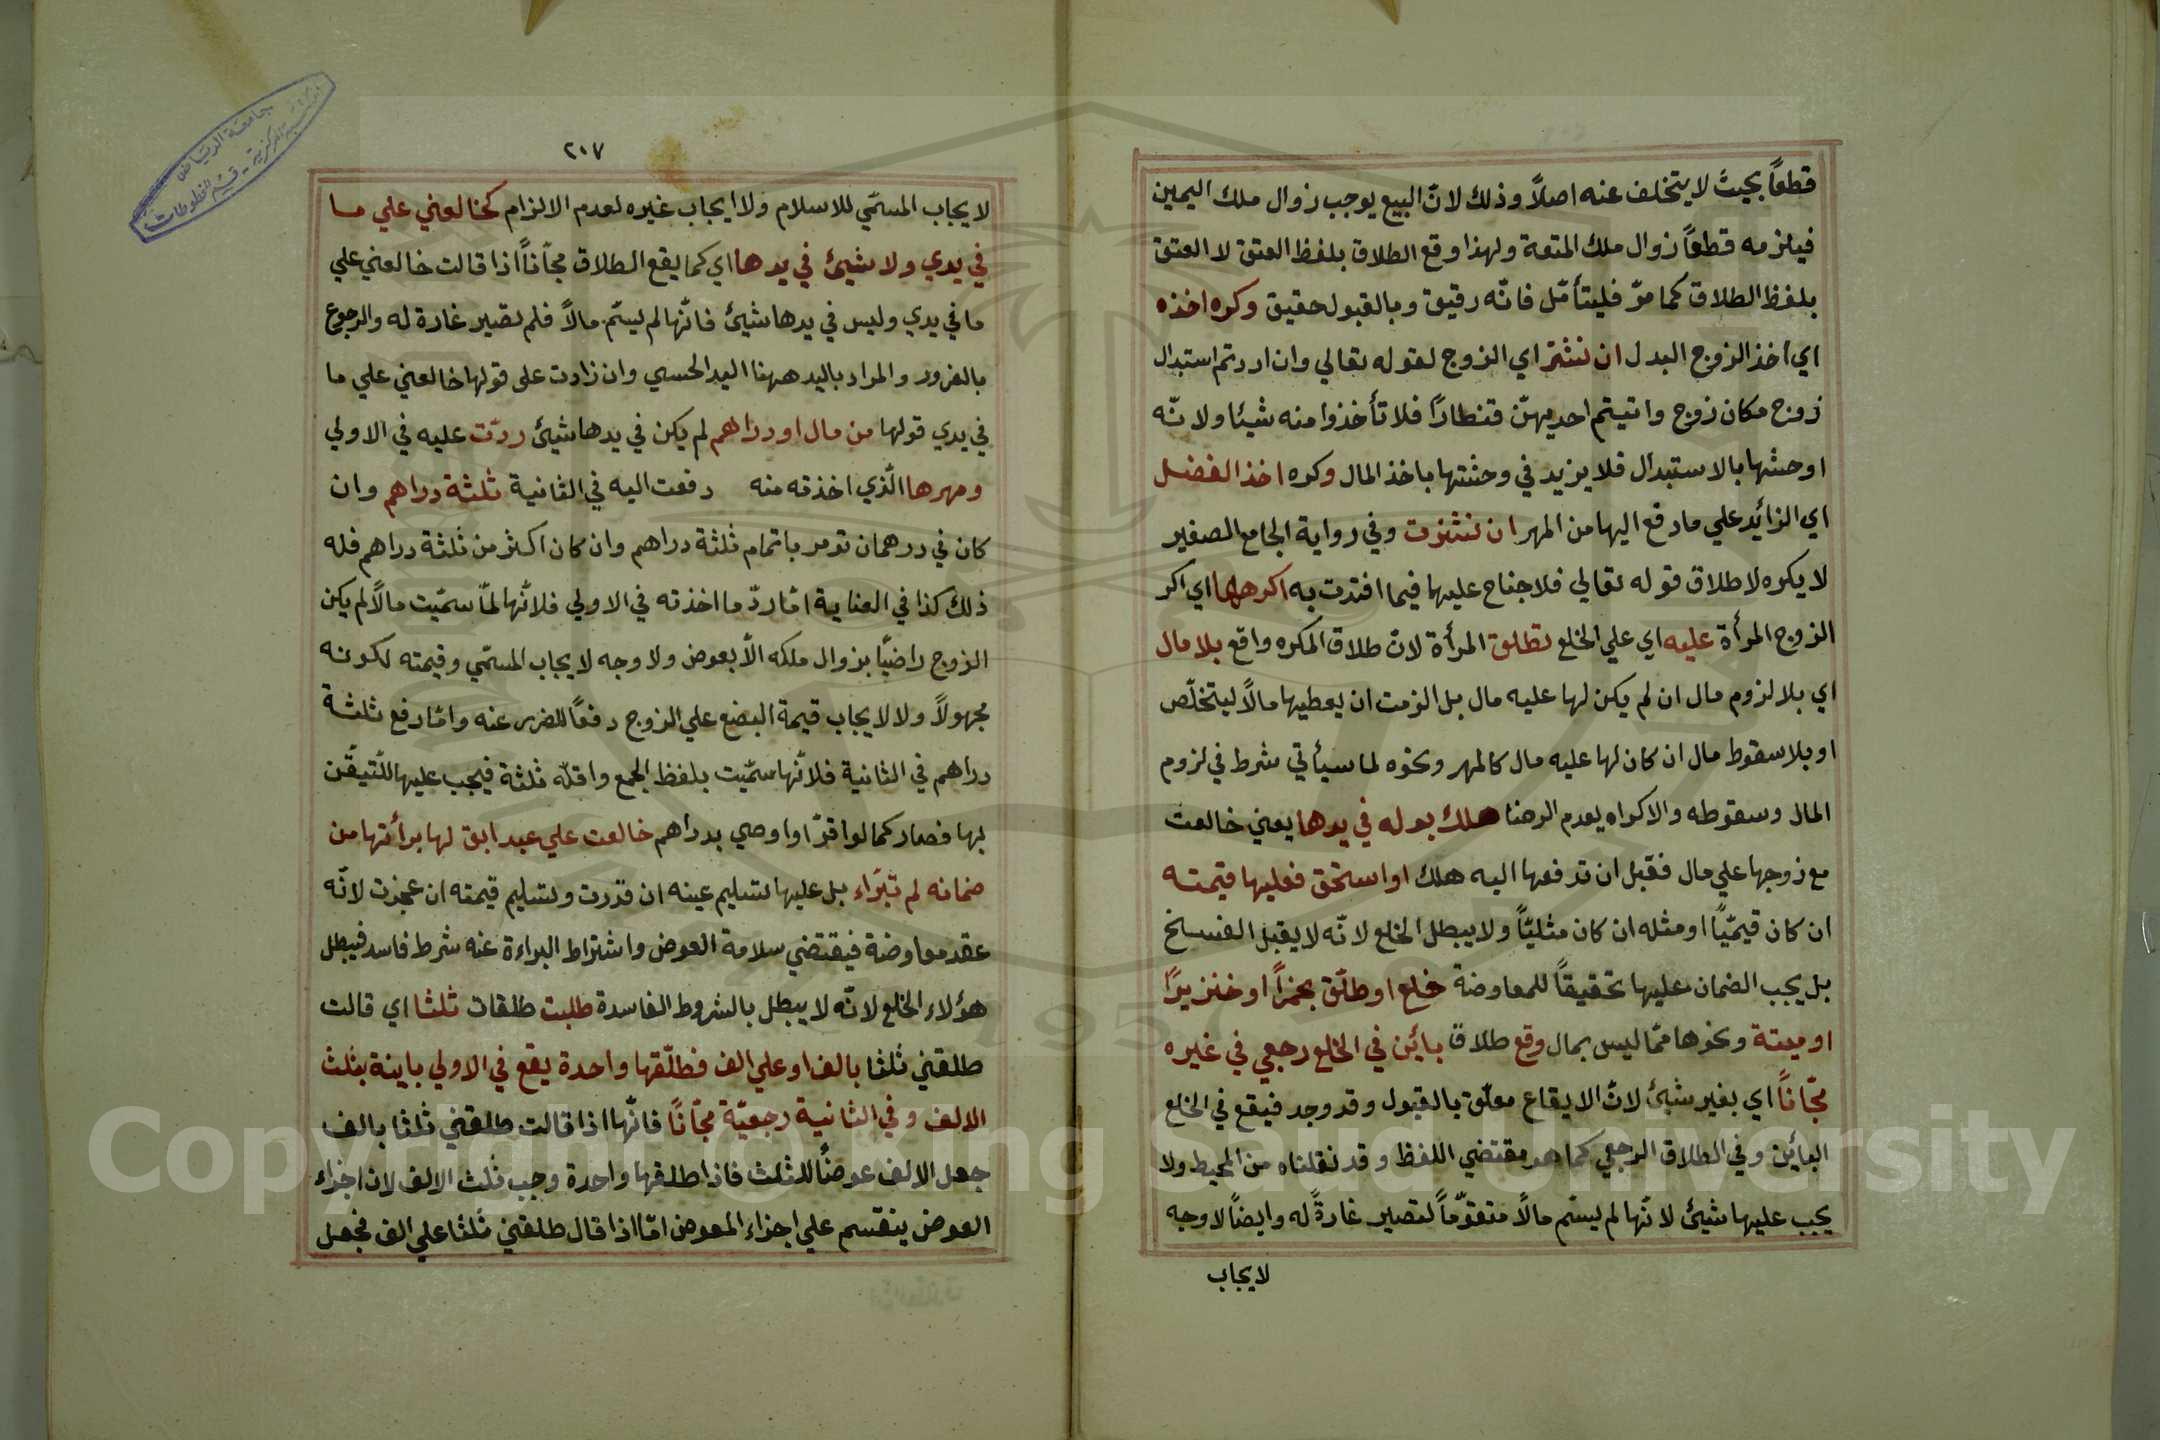 قطعاً بحيث لا يتخلف عنه اصلاً وذلك لانّ البيع يوجب زوال ملك اليمين
فيلزمه قطعاً زوال ملك المتعة ولهذا وقع الطلاق بلفظ العتق لا العتق
بلفظ الطلاق كما مرّ فليتأمّل فانّه رقيق وبالقبول حقيق وكره اخذه
اي اخذ الزوج البدل ان نشز اي الزوج لقوله تعالي وان اردتم استبدال
زوج مكان زوج واتيتم احديهنّ قنطارًا فلا تأخذوا منه شيئا ولانّه
اوحشها بالاستبدال فلا يزيد في وحشتها باخذ المال وكره اخذ الفضل
اي الزائد علي ما دفع اليها من المهر ان نشزت وفي رواية الجامع الصغير
لا يكره لاطلاق قوله تعالي فلا جناح عليهما فيما افتدت به اكرهها اي اكر
الزوج المرأة عليه اي علي الخلع تطلق المرأة لانّ طلاق المكره واقع بلا مال
اي بلا لزوم مال ان لم يكن لها عليه مال بل الزمت ان يعطيها مالاً ليتخلّص
او بلا سقوط مال ان كان لها عليه مال كالمهر ونحوه لما سيأتي شرط في لزوم
المال وسقوطه والاكراه يعدم الرضا هلك بدله في يدها يعني خالعت
مع زوجها علي مال فقبل ان تدفعها اليه هلك او استحق فعليها قيمته
ان كان قيمّيًا او مثله ان كان مثليًّا ولا يبطل الخلع لانّه لا يقبل الفسخ
بل يجب الضمان عليها تحقيقاً للمعاوضة خلع او طلّق بخمرٍ او خنزيرًا
او ميتة ونحوها ممّا ليس بمال وقع طلاق بائن في الخلع رجعي في غيره
مجّانًا اي بغير شيئ لانّ الايقاع معلّق بالقبول وقد وجد فيقع في الخلع
البائن وفي الطلاق الرجعي كما هو مقتضي اللفظ وقد نقلناه من المحيط ولا
يجب عليها شيئ لانّها لم يسّم مالاً متقوّماً لتصير غارةً له وايضاً لا وجه
لايجاب
٢٠٧
لا يجاب المسمّي للاسلام ولا ايجاب غيره لعدم الالزام كخالعني علي ما
في يدي ولا شيئ في يدها اي كما يقع الطلاق مجّاناً اذا قالت خالعني علي
ما في يدي وليس في يدها شيئ فانّها لم يسّم مالاً فلم تصير غارة له والرجوع
بالغرور والمراد باليد ههنا اليد الحسي وان زادت على قولها خالعني علي ما
في يدي قولها من مال او دراهم لم يكن في يدها شيئ ردّت عليه في الاولي
ومهرها الّذي اخذته منه دفعت اليه في الثانية ثلثة دراهم وان
كان في درهمان تومر باتمام ثلثة دراهم وان كان اكثر من ثلثة دراهم فله
ذلك كذا في العناية امّا ردّ ما اخذته في الاولي فلانّها لمّا سمّيت مالاً لم يكن
الزوج راضيًا بزوال ملكه الّا بعوض ولا وجه لا يجاب المسمّي وقيمته لكونه
مجهولاً ولا لايجاب قيمة البضع علي الزوج دفعاً للضرر عنه وامّا دفع ثلثة
دراهم في الثانية فلانّها سمّيت بلفظ الجمع واقلّه ثلثة فيجب عليها للتّيقّن
بها فصار كما لو اقرّ او اوصي بدراهم خالعت علي عبد ابق لها برأتها من
ضمانه لم تبرّاء بل عليها تسليم عينه ان قدرت وتسليم قيمته ان عجزت لانّه
عقد معاوضة فيقتضي سلامة العوض واشتراط البراءة عنه شرط فاسد فيبطل
هؤلاء الخلع لانّه لا يبطل بالشروط الفاسدة طلبت طلقات ثلثا اي قالت
طلقني ثلثا بالف او علي الف فطلّقها واحدة يقع في الاولي باينة بثلث
الالف وفي الثانية رجعيّة مجّانًا فانّها اذا قالت طلقني ثلثا بالف
جعل الالف عوضًا للثلث فاذا طلقها واحدة وجب ثلث الالف لان اجزاء
العوض ينقسم علي اجزاء المعوض امّا اذا قال طلقني ثلثا علي الف فجعل
جامعة الرياض
المكتبة المركزية - قسم المخطوطات
Copyright © King Saud University
1957